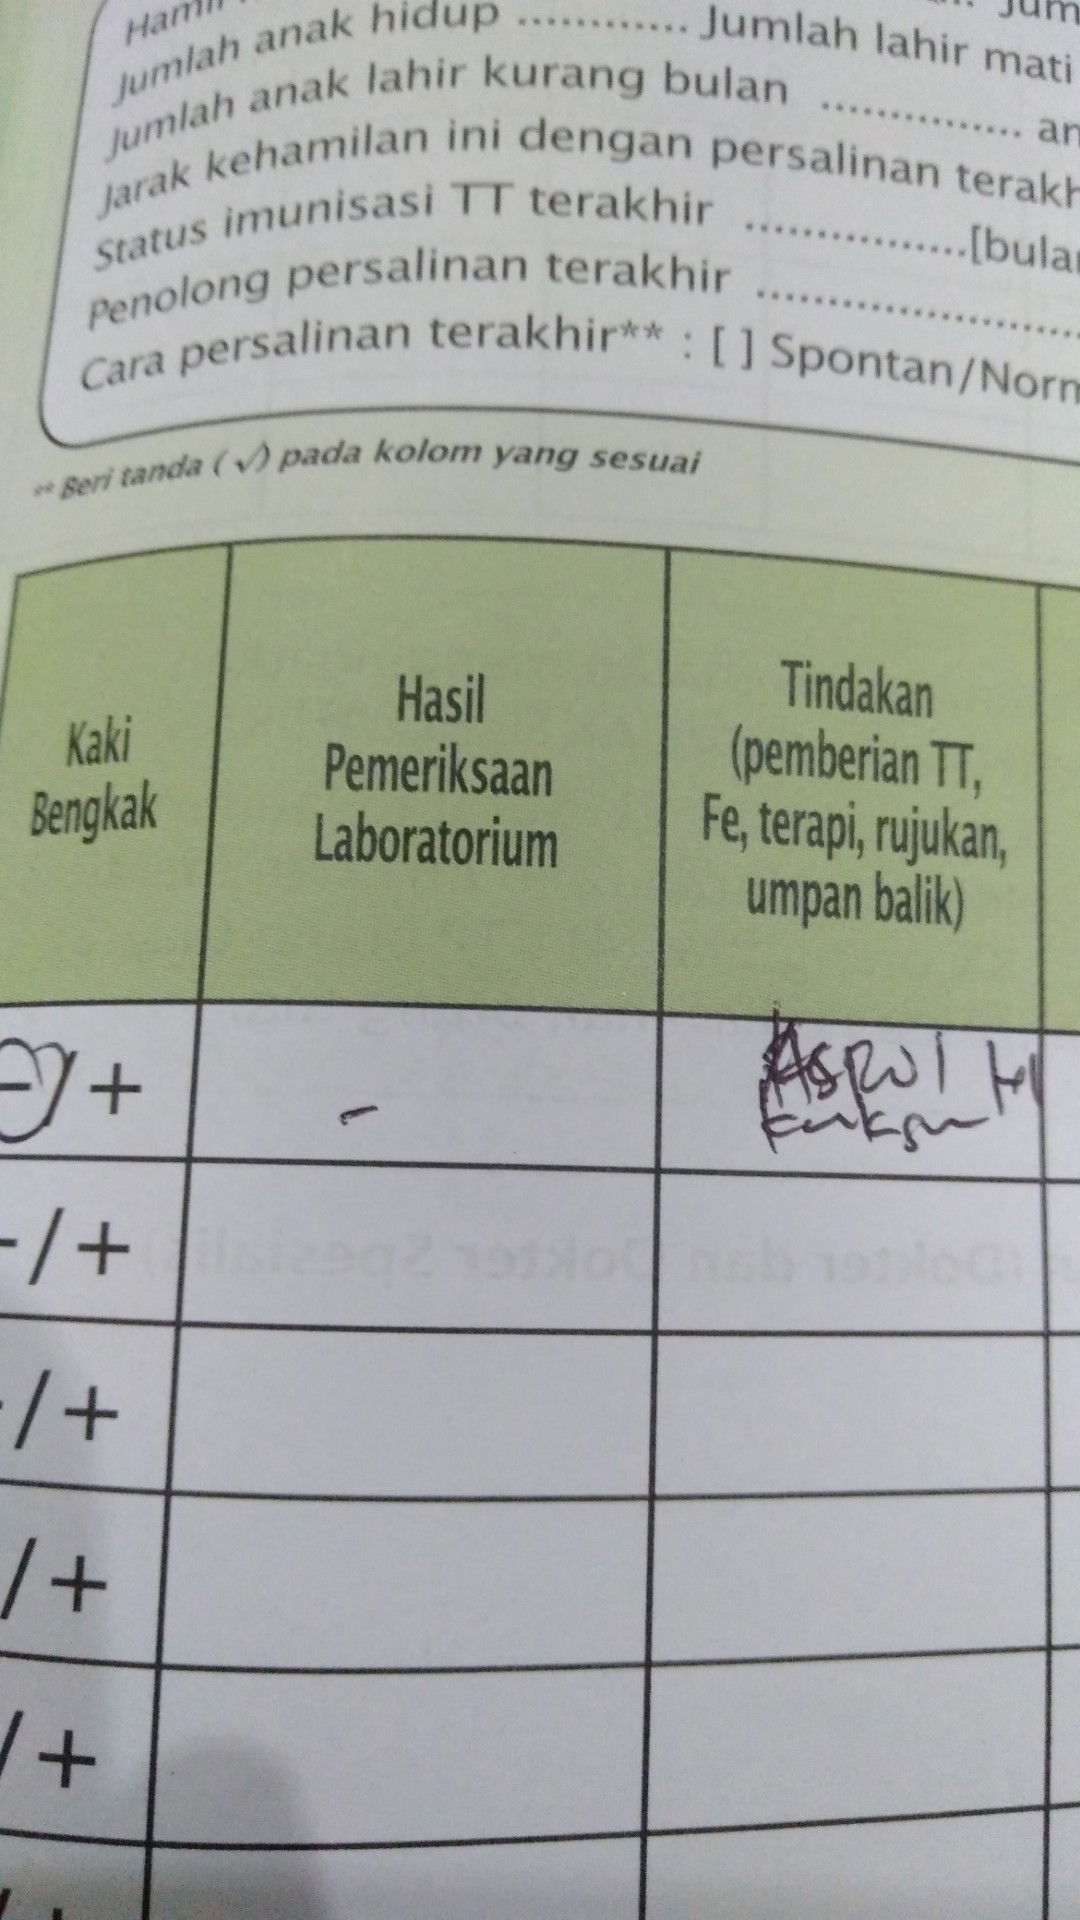 Jumlah anak hidup ............ Jumlah lahir mati
Jumlah anak lahir kurang bulan ...............
Jarak kehamilan ini dengan persalinan
Status imunisasi TT terakhir ................[
Penolong persalinan terakhir ........................
Cara persalinan terakhir** : [ ] Spontan/
** Beri tanda (√) pada kolom yang sesuai
Kaki
Bengkak
Hasil
Pemeriksaan
Laboratorium
Tindakan
(pemberian TT,
Fe, terapi, rujukan,
umpan balik)
-/+
-
-/+
/+
/+
/+